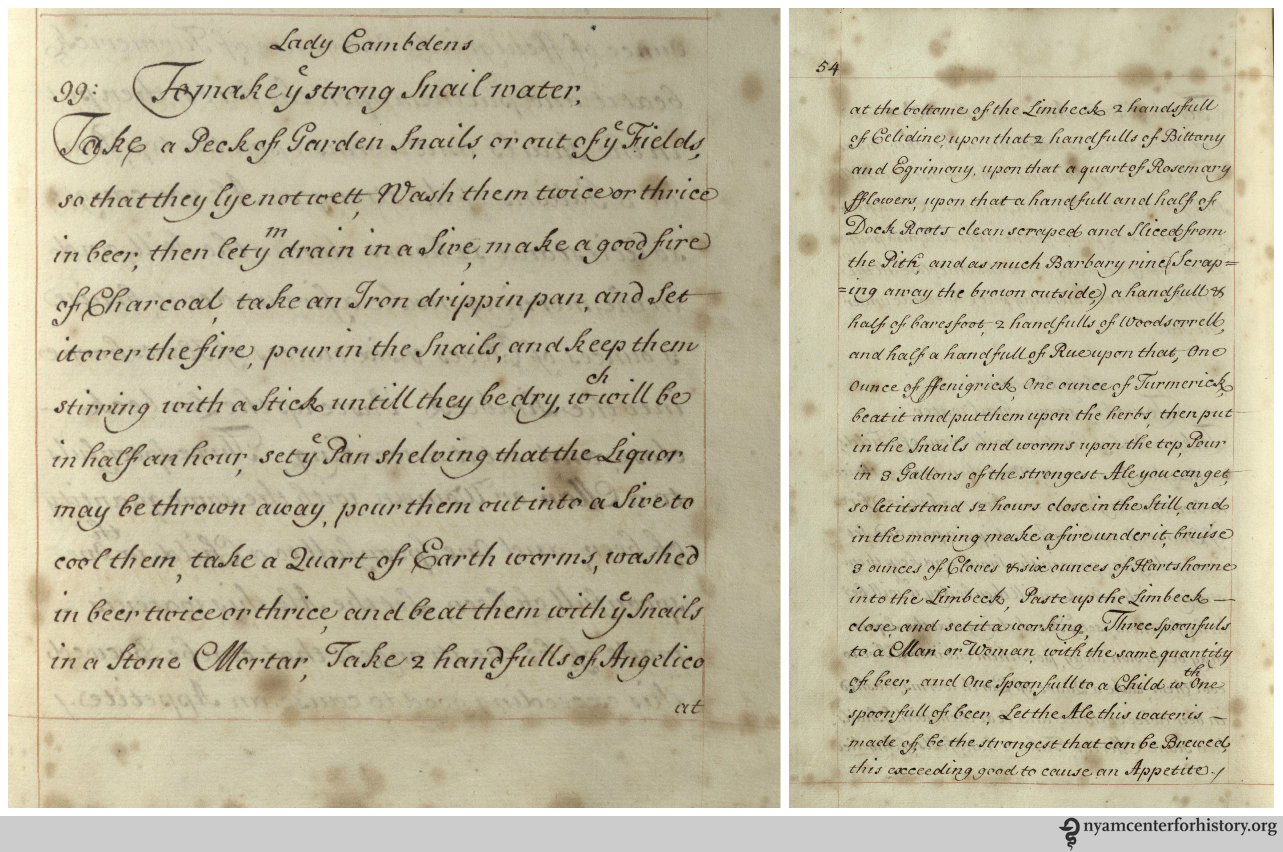 Lady Cambdens
99: To make yᵉ strong Snail water,
Take a Peck of Garden Snails, or out of yᵉ Fields,
so that they lye not wett, Wash them twice or thrice
in beer, then let yᵐ drain in a Sive, make a good fire
of Charcoal, take an Iron drippin pan, and Set
it over the fire, pour in the Snails, and keep them
stirring with a Stick untill they be dry, wᶜʰ will be
in half an hour, set yᵉ Pan shelving that the Liquor
may be thrown away, pour them out into a Sive to
cool them, take a Quart of Earth worms, washed
in beer twice or thrice, and beat them with yᵉ Snails
in a Stone Mortar, Take 2 handfulls of Angelico
at
54
at the bottome of the Limbeck 2 handsfull
of Celidine, upon that 2 handfulls of Bittany
and Egrimony, upon that a quart of Rosemary
fflowers, upon that a handfull and half of
Dock Roots clean scraped and Sliced from
the Pith, and as much Barbary rine (Scrap=
=ing away the brown outside,) a handfull &
half of baresfoot, 2 handfulls of Woodsorrell,
and half a handfull of Rue upon that, One
ounce of ffenigrick, One ounce of Turmerick,
beat it and put them upon the herbs, then put
in the Snails and worms upon the top, Pour
in 3 Gallons of the strongest Ale you can get,
so let it stand 12 hours close in the Still, and
in the morning make a fire under it, bruise
3 ounces of Cloves & six ounces of Hartshorne
into the Limbeck, Paste up the Limbeck —
close, and set it a working, Three spoonfuls
to a Man or Woman, with the same quantity
of beer, and One Spoonfull to a Child wᵗʰ One
spoonfull of beer, Let the Ale this water is —
made of, be the strongest that can be Brewed,
this exceeding good to cause an Appetite./
nyamcenterforhistory.org